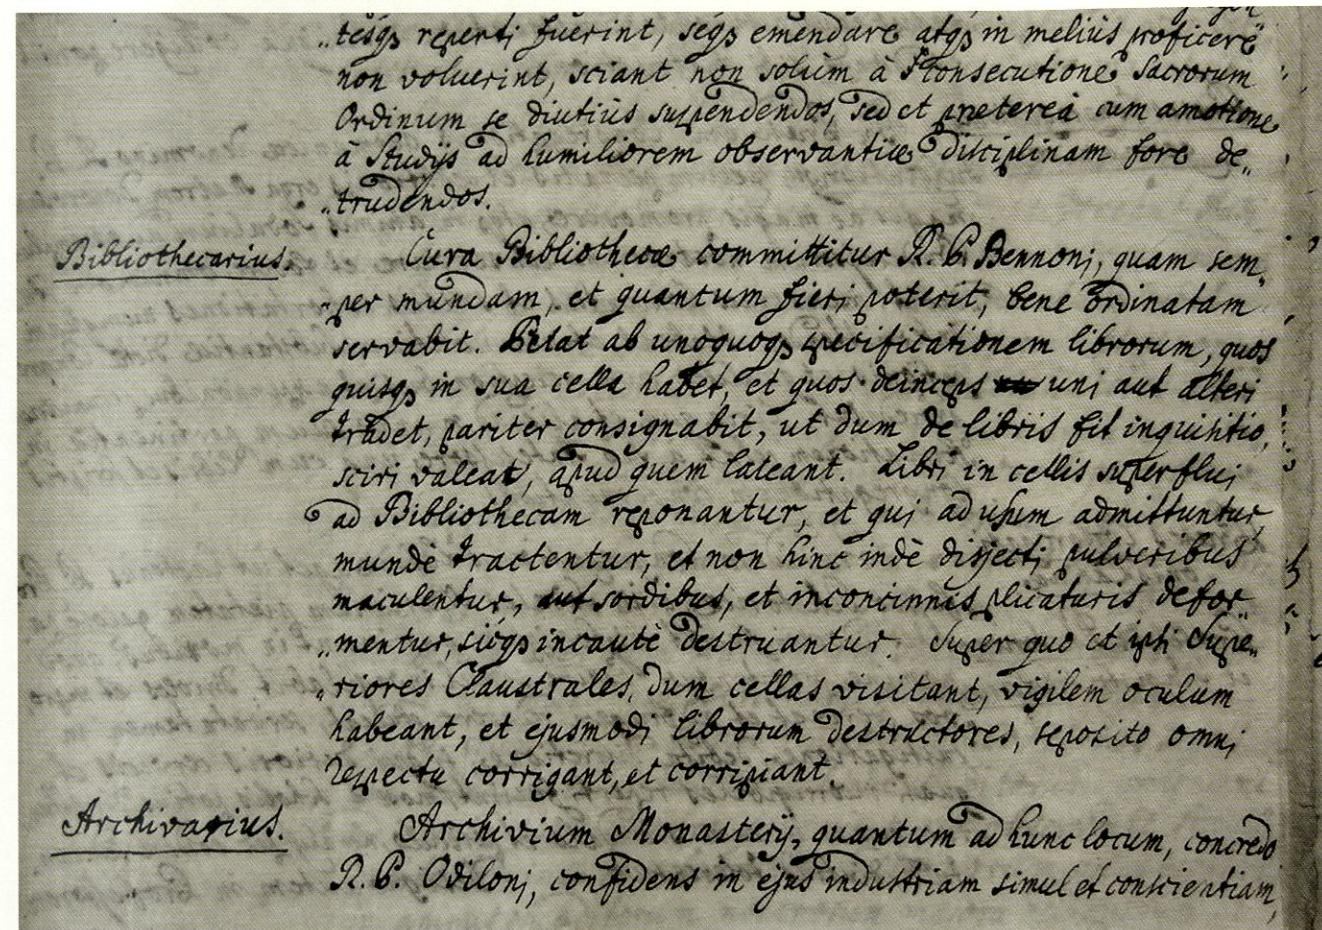 „tesq₃ reperti fuerint, seq₃ emendare atq₃ in meliùs proficere
non voluerint, sciant non solùm à consecutione Sacrorum
Ordinum se diutiùs suspendendos, sed et præterea cum amotione
à Studijs ad humiliorem observantiæ disciplinam fore de„
„trudendos.
Bibliothecarius. Cura Bibliothecæ committitur R. P. Bennoni, quam sem„
„per mundam, et quantum fieri poterit, bene ordinatam
servabit. Petat ab unoquoq₃ specificationem librorum, quos
quisq₃ in sua cella habet, et quos deinceps uni aut alteri
tradet, pariter consignabit, ut dum de libris fit inquisitio,
sciri valeat, apud quem lateant. Libri in cellis superflui
ad Bibliothecam reponantur, et qui ad usum admittuntur,
mundè tractentur, et non hinc indè disjecti pulveribus
maculentur, aut sordibus, et inconcinnis plicaturis defor„
„mentur, sicq₃ incautè destruantur. Super quo et ipsi Supe„
„riores Claustrales, dum cellas visitant, vigilem oculum
habeant, et ejusmodi librorum destructores, seposito omni
respectu corrigant, et corripiant.
Archivarius. Archivium Monasterij, quantum ad hunc locum, concredo
R. P. Odiloni, confidens in ejus industriam simul et conscientiam,